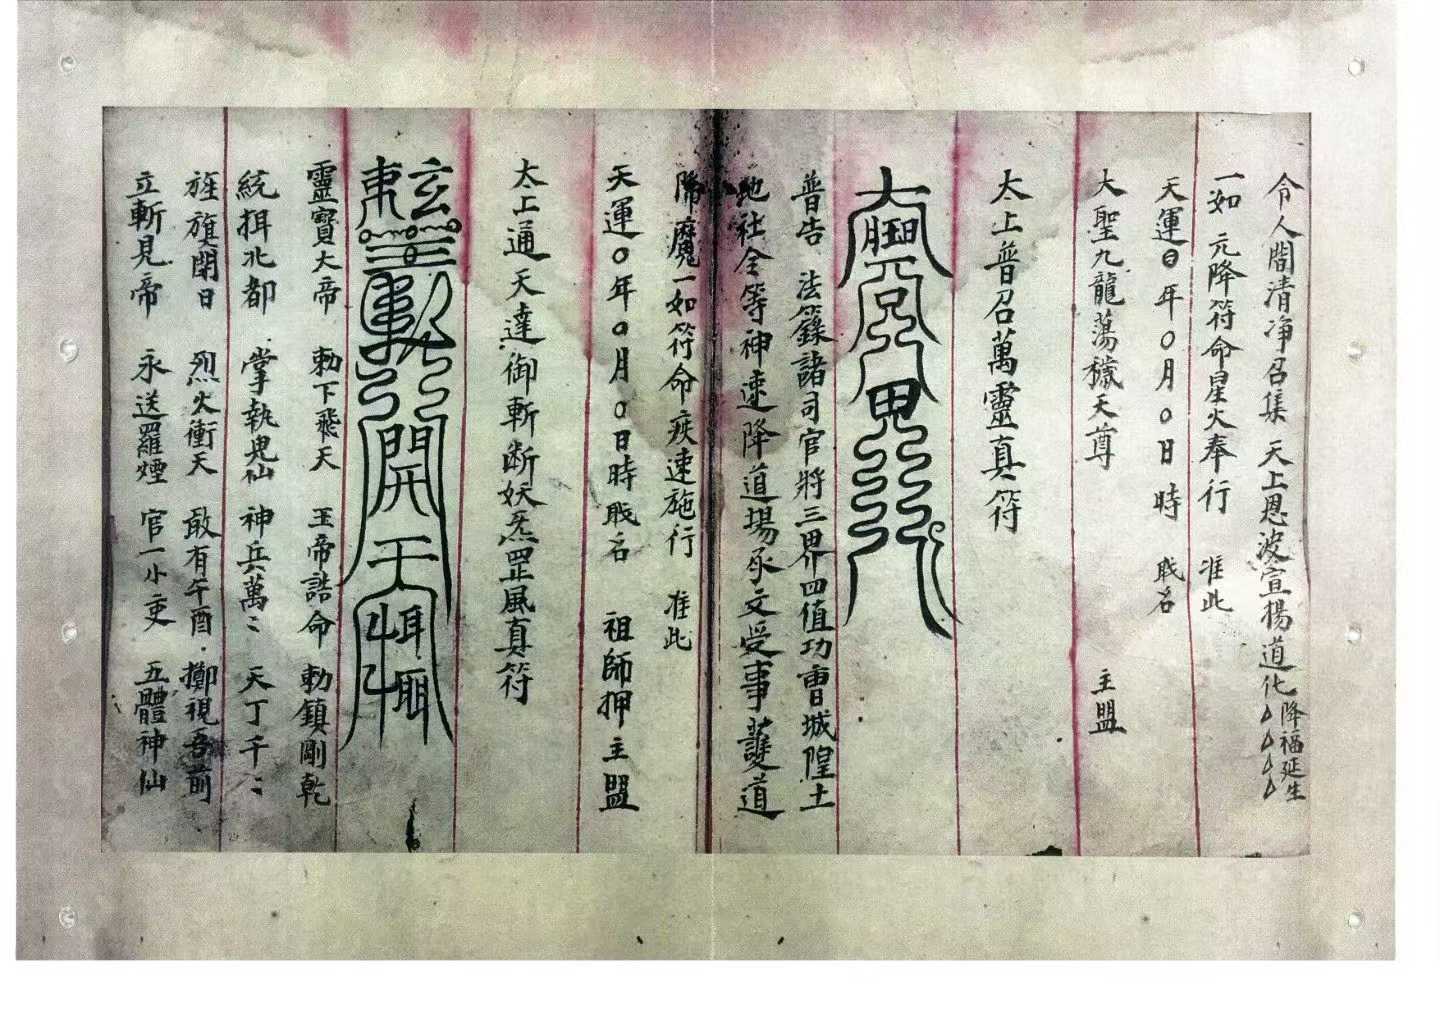 令人間清净召集 天上恩波宣揚道化降福延生
一如 元降符命星火奉行 准此
天運日年〇月〇日時 戝名
大聖九龍蕩穢天尊 主盟
太上普召萬靈真符
普告 法籙諸司官將三界四值功曹城隍土
地社令等神速降道場承文受事䕶道
降魔一如符命疾速施行 准此
天運〇年〇月〇日時戝名 祖師押主盟
太上通天達御斬断妖炁罡風真符
靈寶大帝 勅下飛天 玉帝誥命 勅鎮剛乾
統揖北都 掌執鬼仙 神兵萬〻 天丁千〻
旌旗閉日 烈火衝天 敢有午酉 擲視吾前
立斬見帝 永送羅煙 官一小吏 五體神仙